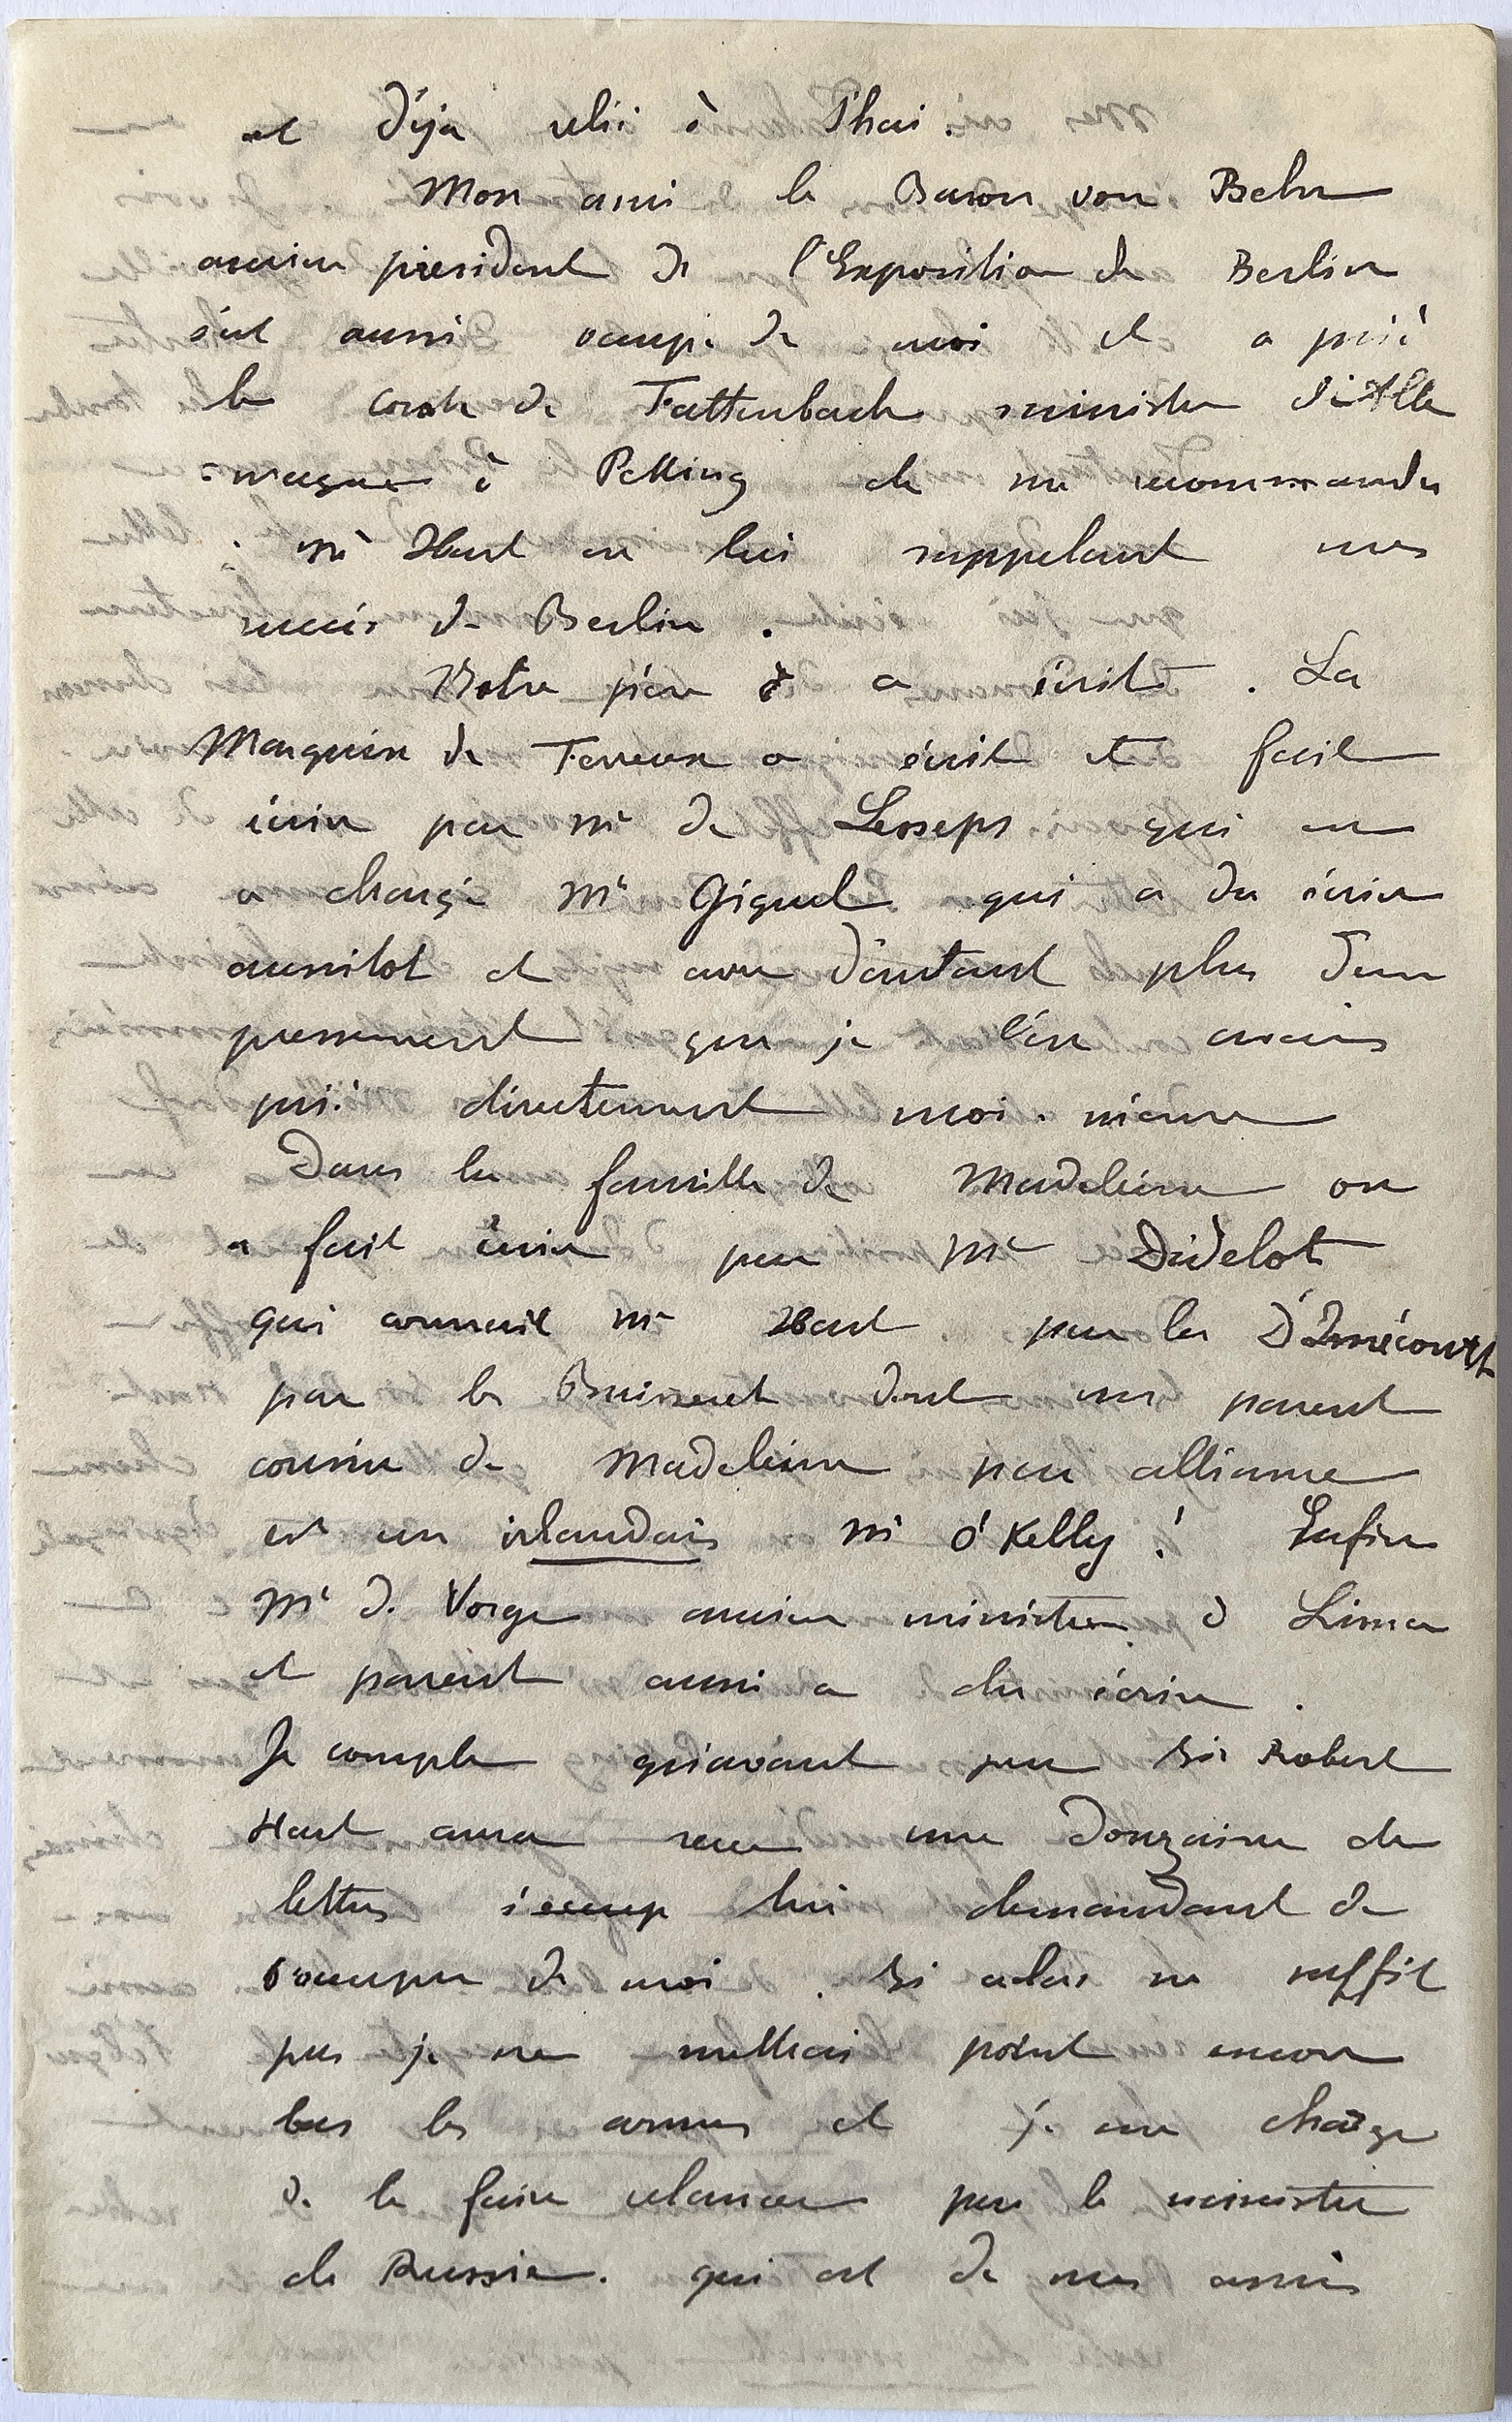 est déja relié à Shai.
Mon ami le Baron von Behr
ancien président de l'Exposition de Berlin
s'est aussi occupé de moi et a prié
le comte de Tattenbach ministre d'Alle
=magne à Pekking de me recommander
à Mr Hart en lui rappelant mes
succès de Berlin.
Notre père a écrit. La
Marquise de a écrit et fait
écrire par Mr de Lesseps qui en
a chargé Mr Giquel qui a du écrire
aussitot et avec d'autant plus d'em
pressement que je l'en avais
prié directement moi-même
Dans la famille de Madeleine on
a fait écrire par Mr Didelot
qui connait Mr Hart par les D'Imécourt
par les Buisseret dont un parent
cousin de Madeleine par alliance
est un irlandais Mr O'Kelly! Enfin
Mr de Vorge ancien ministre à Lima
et parent aussi a du écrire.
Je compte qu'avant peu Sir Robert
Hart aura reçu une douzaine de
lettres s'occup lui demandant de
s'occuper de moi. Si cela ne suffit
pas je ne mettrai point encore
bas les armes et je me charge
de le faire relancer par le ministre
de Russie. qui est de mes amis